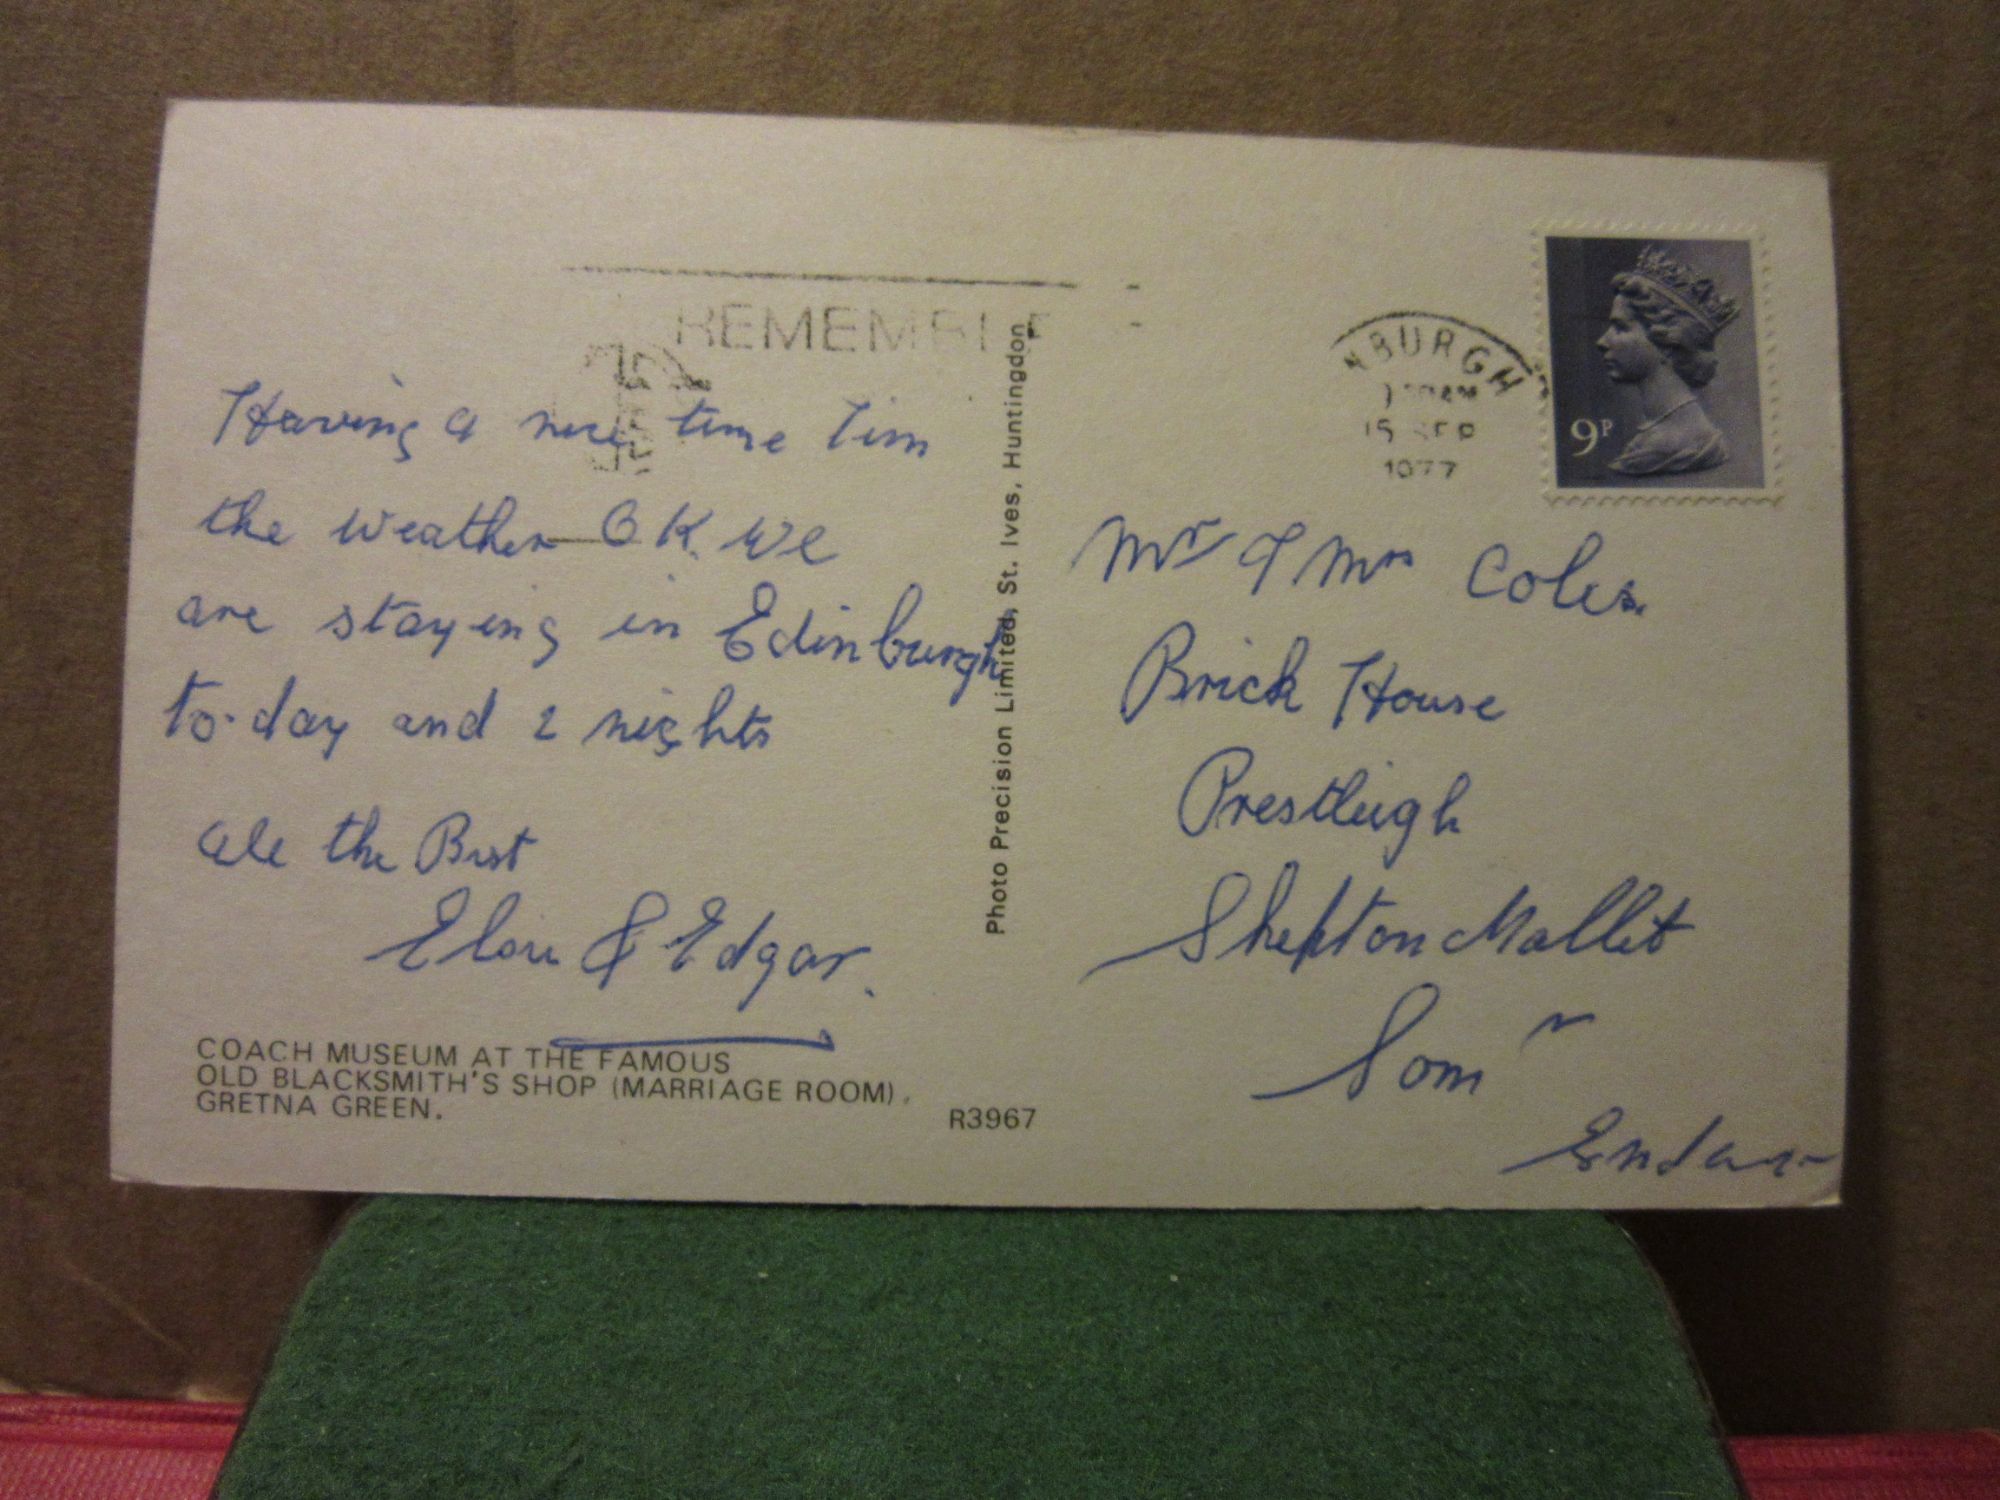 REMEMBE
Having a nice time Tim
the weather OK. We
are staying in Edinburgh
to-day and 2 nights
all the Best
& Edgar.
COACH MUSEUM AT THE FAMOUS
OLD BLACKSMITH'S SHOP (MARRIAGE ROOM),
GRETNA GREEN.
R3967
Photo Precision Limited, St. Ives, Huntingdon
NBURGH
15 SEP
1977
9P
Mr & Mrs Coles
Brick House
Prestleigh
Shepton Mallet
Som